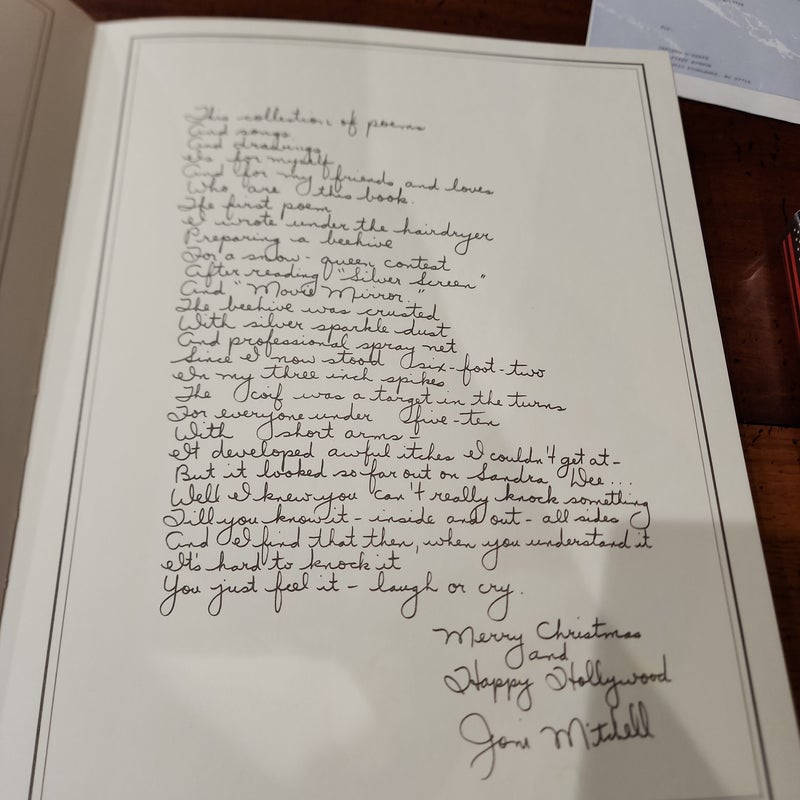 This collection of poems
And songs
And drawings
Is for myself
And for my friends and loves
Who are this book.
The first poem
I wrote under the hairdryer
Preparing a beehive
For a snow-queen contest
After reading "Silver Screen"
And "Movie Mirror."
The beehive was crusted
With silver sparkle dust
And professional spray net
Since I now stood six-foot-two
In my three inch spikes
The coif was a target in the turns
For everyone under five-ten
With short arms -
It developed awful itches I couldn't get at -
But it looked so far out on Sandra Dee...
Well I knew you can't really knock something
Till you know it - inside and out - all sides
And I find that then, when you understand it
It's hard to knock it
You just feel it - laugh or cry.
Merry Christmas
and
Happy Hollywood
Joni Mitchell